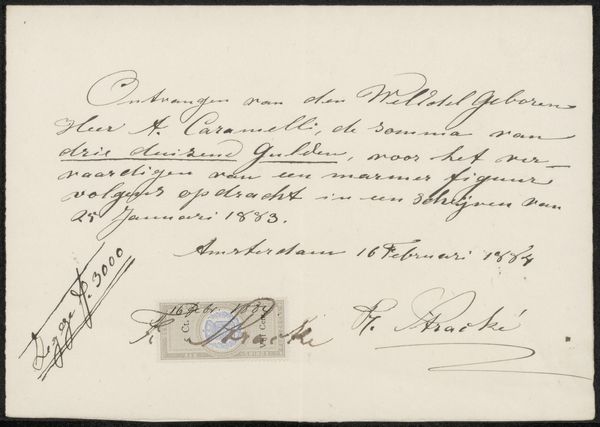 Ontvangen van den WelEdel Geboren
Heer A. Caramelli, de somma van
drie duizend Gulden, voor het ver-
vaardigen van een marmer figuur
volgens opdracht in een schrijven van
25 Januari 1883.
Amsterdam 16 Februari 1884
Zegge f. 3000
16 Febr. 1884.
F. Stracké
F. Stracké